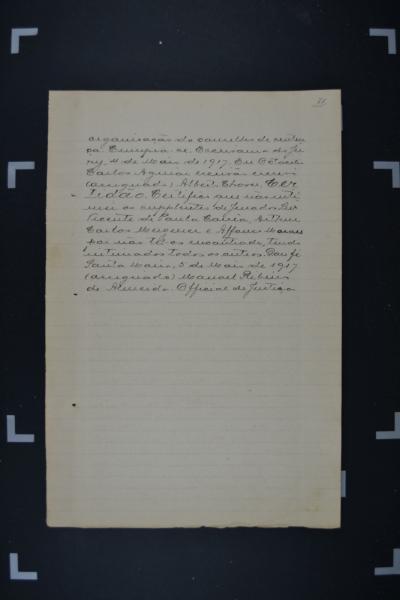 organisação do conselho de senten-
ça. Cumpra-se. Escrivania do Ju-
ry, 4 de Maio de 1917. Eu
Carlos Aguiar escrivão escrevi
(assignado) Cer-
tidão. Certifico que não inti-
mei os supplentes de jurados
Vicente de Paula Arthur
Carlos e Affonso
por não tel-os encontrado, tendo
intimados todos os outros. Dou fé
Santa Maria, 5 de Maio de 1917
(assignado) Manoel Ribeiro
de Almeida. Official de Justiça